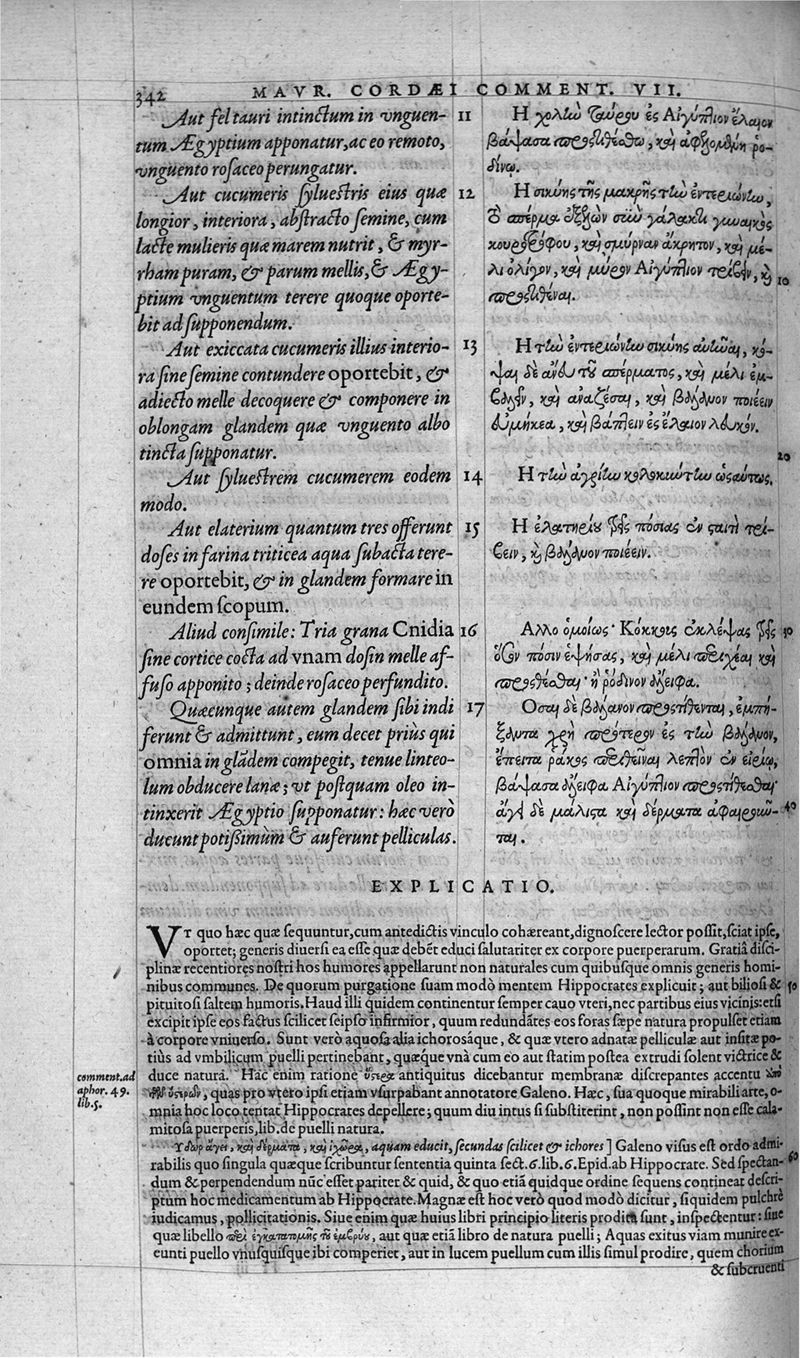 342 MAVR. CORDÆI COMMENT. VII.
Aut fel tauri intinctum in vnguen-
tum Ægyptium apponatur, ac eo remoto,
vnguento rosaceo perungatur.
Aut cucumeris syluestris eius quæ
longior, interiora, abstracto semine, cum
lacte mulieris quæ marem nutrit, & myr-
rham puram, & parum mellis, & Ægy-
ptium vnguentum terere quoque oporte-
bit ad supponendum.
Aut exiccata cucumeris illius interio-
ra sine semine contundere oportebit, &
adiecto melle decoquere & componere in
oblongam glandem quæ vnguento albo
tincta supponatur.
Aut syluestrem cucumerem eodem
modo.
Aut elaterium quantum tres offerunt
doses in farina triticea aqua subacta tere-
re oportebit, & in glandem formare in
eundem scopum.
Aliud consimile: Tria grana Cnidia
sine cortice cocta ad vnam dosin melle af-
fuso apponito; deinde rosaceo perfundito.
Quæcunque autem glandem sibi indi
ferunt & admittunt, eum decet priùs qui
omnia in glādem compegit, tenue linteo-
lum obducere lanæ; vt postquam oleo in-
tinxerit Ægyptio supponatur: hæc verò
ducunt potissimùm & auferunt pelliculas.
11 Η χολὴν ταύρου ἐς Αἰγύπτιον ἔλαιον
βάψασα προστιθέσθω, καὶ ἀφελομένη ῥο-
δίνῳ.
12 Η σικύης τῆς μακρῆς τὴν ἐντεριώνην,
τὸ σπέρμα ἐξελὼν σὺν γάλακτι γυναικὸς
κουροτρόφου, καὶ σμύρναν ἄκρητον, καὶ μέ-
λι ὀλίγον, καὶ μύρον Αἰγύπτιον τρίβειν, καὶ 10
προστιθέναι.
13 Η τὴν ἐντεριώνην σικύης αὐῆναι, κό-
ψαι δὲ ἄνευ τοῦ σπέρματος, καὶ μέλι ἐμ-
βαλεῖν, καὶ ἀναζέσαι, καὶ βάλανον ποιέειν
εὐμήκεα, καὶ βάπτειν ἐς ἔλαιον λευκόν.
20
14 Η τὴν ἀγρίην κολοκύντην ὡσαύτως.
15 Η ἐλατηρίου τρεῖς πόσιας ἐν σταιτὶ τρί-
βειν, καὶ βάλανον ποιέειν.
16 Αλλο ὁμοίως· Κόκκους ἐκλέψας τρεῖς 30
ὅσον πόσιν ἑψήσας, καὶ μέλι περιχέαι καὶ
προσθέσθαι· ἢ ῥόδινον ἄλειφα.
17 Οσαι δὲ βάλανον προστίθενται, ἐμπή-
ξαντα χρὴ πρότερον ἐς τὴν βάλανον,
ἔπειτα ῥάκος περιθεῖναι λεπτὸν ἐν εἰρίῳ,
βάψασα ἄλειφα Αἰγύπτιον προστίθεσθαι·
ἄγει δὲ μάλιστα καὶ δέρματα ἀφαιρεῦν- 40
ται.
EXPLICATIO.
VT quo hæc quæ sequuntur, cum antedictis vinculo cohæreant, dignoscere lector possit, sciat ipse,
oportet; generis diuersi ea esse quæ debēt educi salutariter ex corpore puerperarum. Gratiâ disci-
plinæ recentiores nostri hos humores appellarunt non naturales cum quibusque omnis generis homi-
nibus communes. De quorum purgatione suam modò mentem Hippocrates explicuit; aut biliosi & 50
pituitosi saltem humoris. Haud illi quidem continentur semper cauo vteri, nec partibus eius vicinis: etsi
excipit ipse eos factus scilicet seipso infirmior, quum redundātes eos foras sæpe natura propulset etiam
à corpore vniuerso. Sunt verò aquosa alia ichorosáque, & quæ vtero adnatæ pelliculæ aut insitæ po-
tiùs ad vmbilicum puelli pertinebant, quæque vnà cum eo aut statim postea extrudi solent victrice &
duce naturâ. Hac enim ratione ὕστερα antiquitus dicebantur membranæ discrepantes accentu ἀπὸ
comment. ad
aphor. 49.
lib. 5.
τῶν ὑστερῶν, quas pro vtero ipsi etiam vsurpabant annotatore Galeno. Hæc, sua quoque mirabili arte, o-
mnia hoc loco tentat Hippocrates depellere; quum diu intus si substiterint, non possint non esse cala-
mitosa puerperis, lib. de puelli natura.
ὕδωρ ἄγει, καὶ δέρματα, καὶ ἰχῶρα, aquam educit, secundas scilicet & ichores] Galeno visus est ordo admi-
rabilis quo singula quæque scribuntur sententia quinta sect. 6. lib. 6. Epid. ab Hippocrate. Sed spectan- 60
dum & perpendendum nūc esset pariter & quid, & quo etiā quidque ordine sequens contineat descri-
ptum hoc medicamentum ab Hippocrate. Magnæ est hoc verò quod modò dicitur, siquidem pulchrè
iudicamus, pollicitationis. Siue enim quæ huius libri principio literis prodita sunt, inspectentur: siue
quæ libello περὶ ἐγκατατομῆς τοῦ ἐμβρύου, aut quæ etiā libro de natura puelli; Aquas exitus viam munire ex-
eunti puello vnusquisque ibi comperiet, aut in lucem puellum cum illis simul prodire, quem chorium
& subcruenti